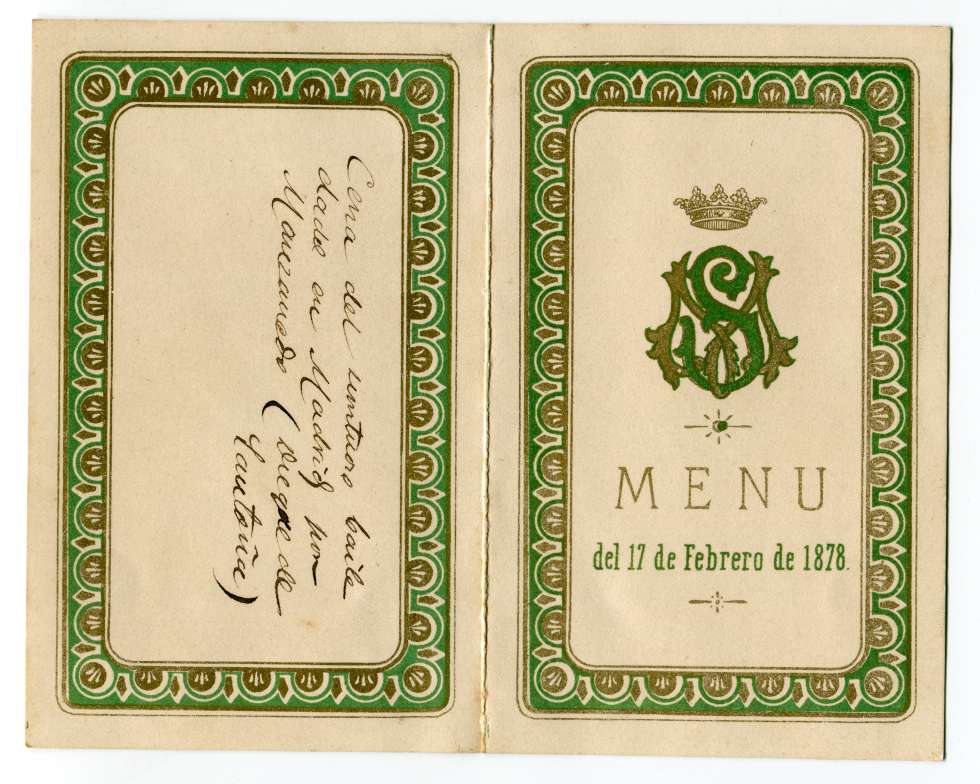 Cena del suntuoso baile
dado en Madrid por
Manzanedo (Duque de
Santoña)
MS
MENU
del 17 de Febrero de 1878.